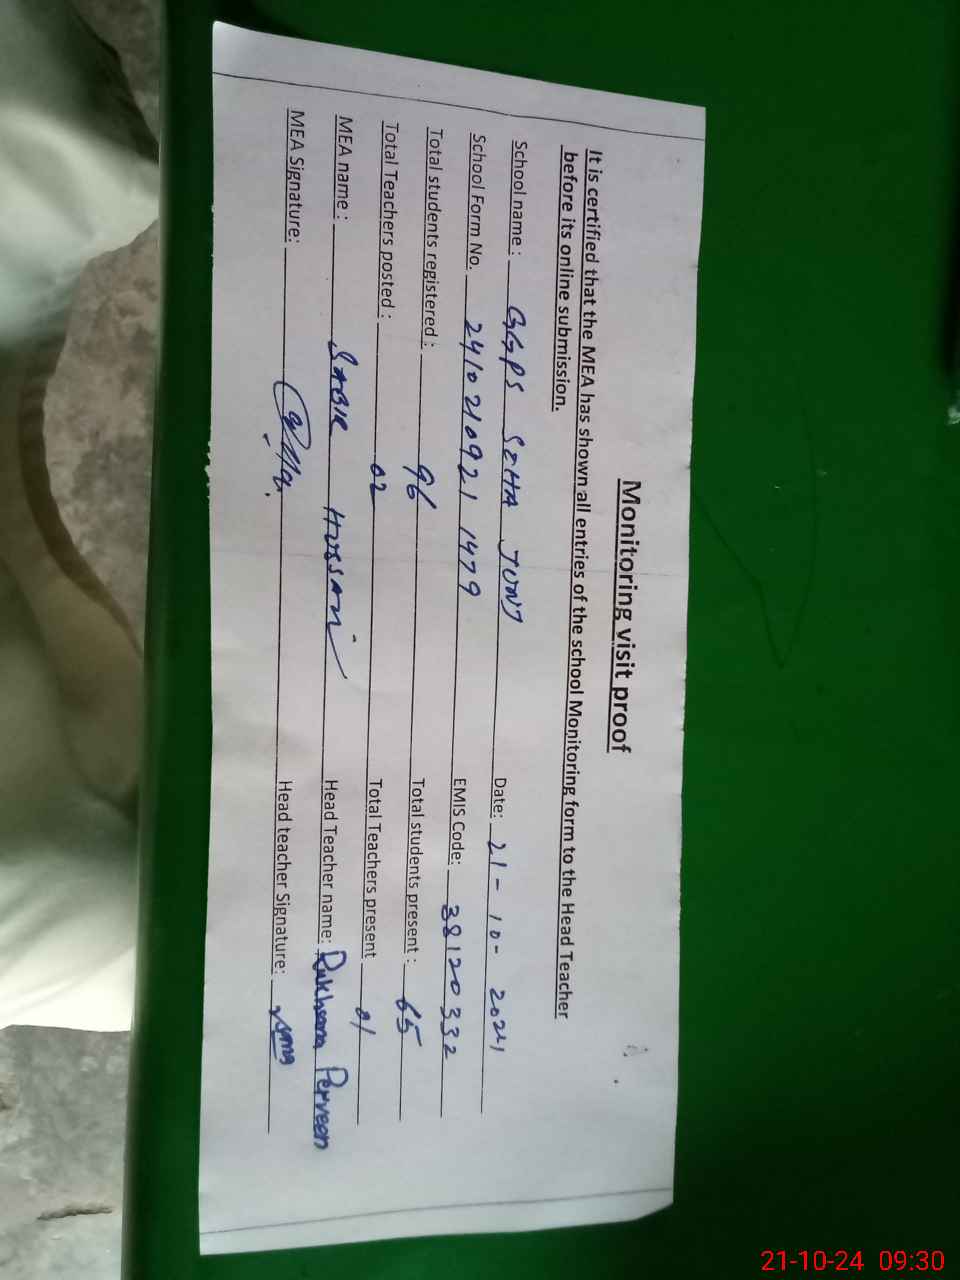 Monitoring visit proof
It is certified that the MEA has shown all entries of the school Monitoring form to the Head Teacher
before its online submission.
School name : GGPS SEHA JONJ Date: 21-10-2024
School Form No. 241021092 1 1479 EMIS Code: 38120332
Total students registered : 96 Total students present : 65
Total Teachers posted : 02 Total Teachers present 01
MEA name : SABIR HUSSAIN Head Teacher name: Rukhsana Perveen
MEA Signature: Head teacher Signature:
21-10-24 09:30